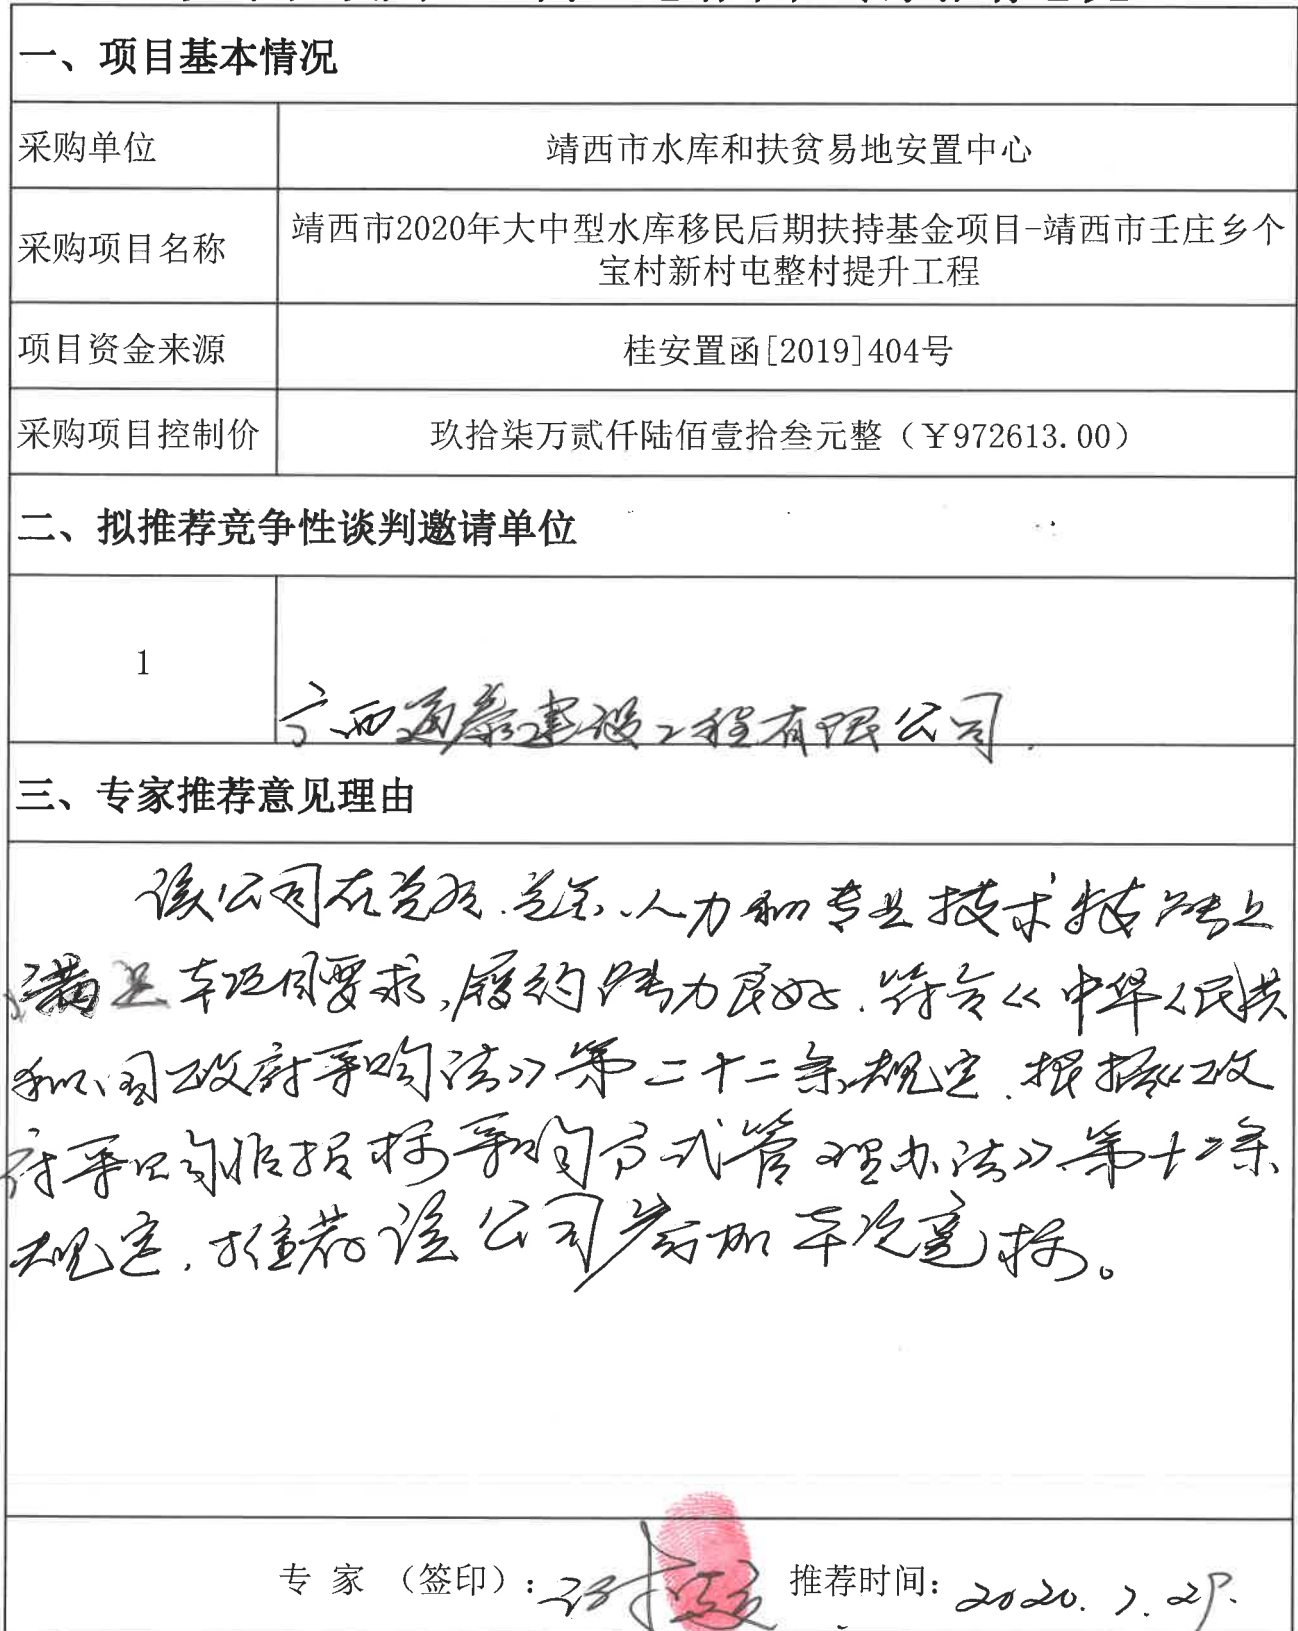 一、项目基本情况
采购单位
靖西市水库和扶贫易地安置中心
采购项目名称
靖西市2020年大中型水库移民后期扶持基金项目-靖西市壬庄乡个
宝村新村屯整村提升工程
项目资金来源
桂安置函[2019]404号
采购项目控制价
玖拾柒万贰仟陆佰壹拾叁元整（￥972613.00）
二、拟推荐竞争性谈判邀请单位
1
广西通泰建设工程有限公司.
三、专家推荐意见理由
该公司在资质.资金、人力和专业技术技能上
满足本项目要求,履约能力良好.符合《中华人民共
和国政府采购法》第二十二条规定.根据《政
府采购非招标采购方式管理办法》第十二条
规定,推荐该公司参加本次竞标。
专 家 （签印）:
推荐时间:
2020.7.29.